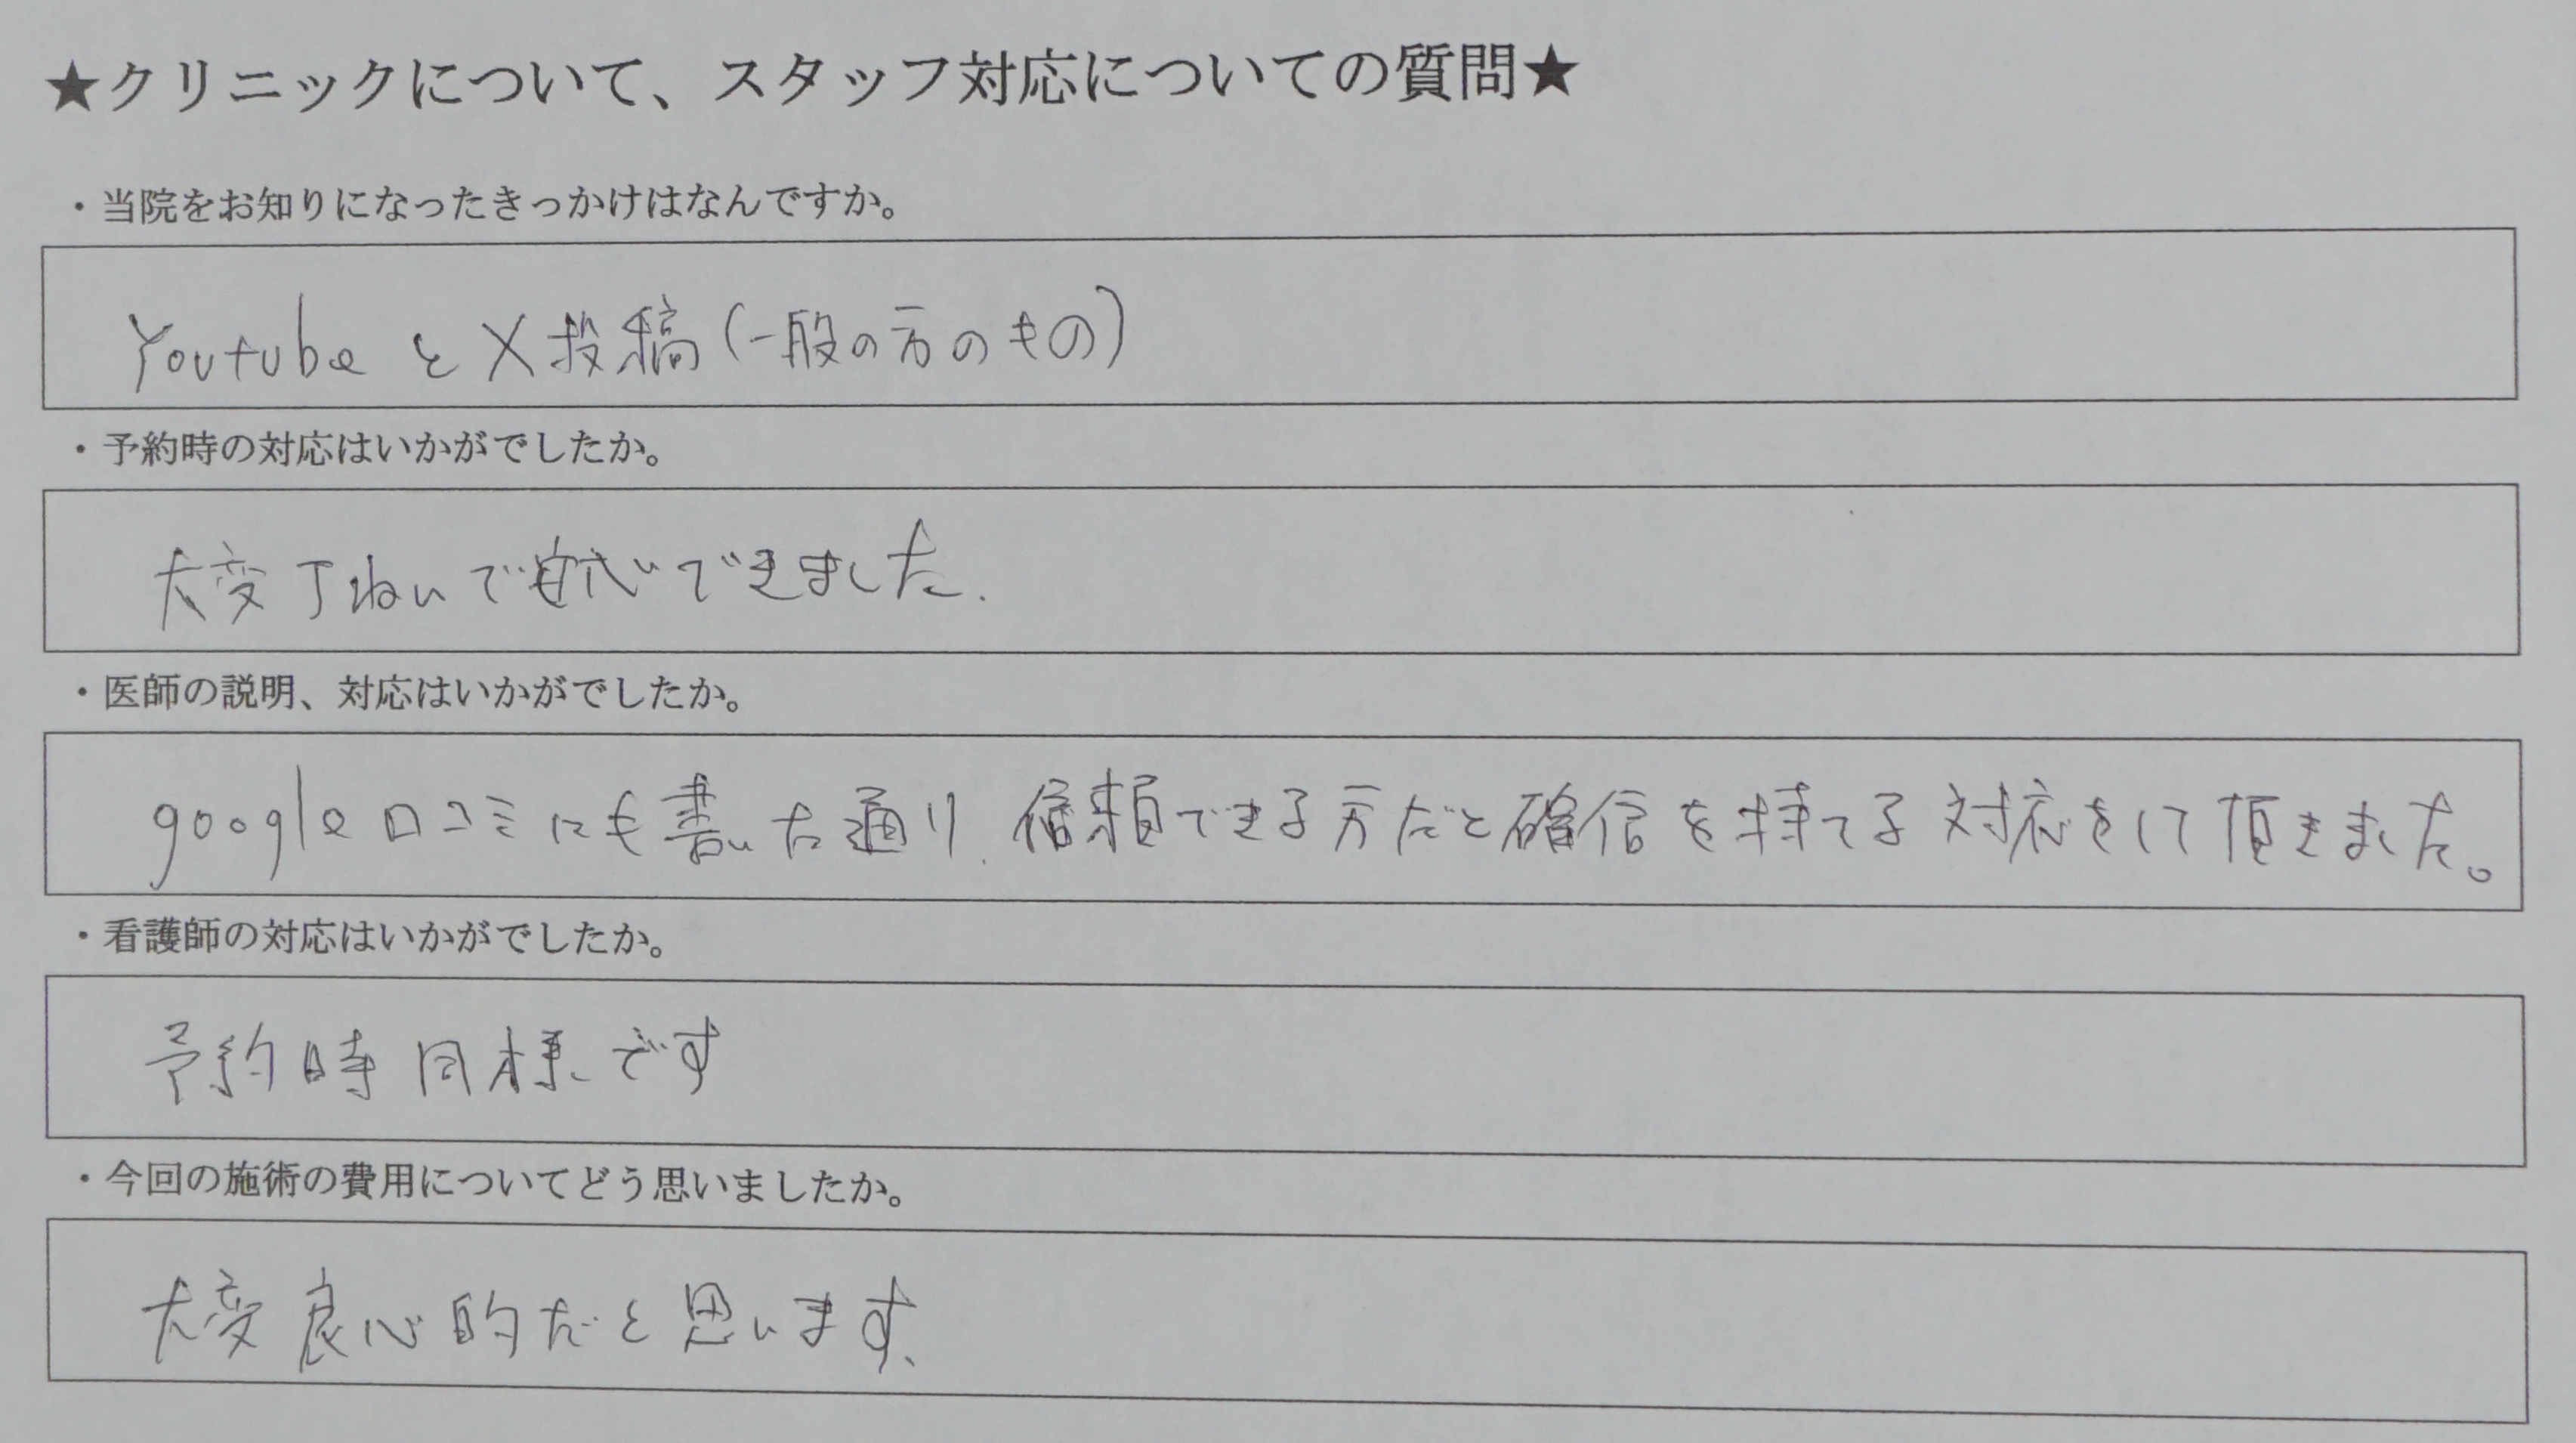 ★クリニックについて、スタッフ対応についての質問★
・当院をお知りになったきっかけはなんですか。
YoutubeとX投稿(一般の方のもの)
・予約時の対応はいかがでしたか。
大変丁ねいで安心できました.
・医師の説明、対応はいかがでしたか。
google口コミにも書いた通り、信頼できる方だと確信を持てる対応をして頂きました。
・看護師の対応はいかがでしたか。
予約時同様です
・今回の施術の費用についてどう思いましたか。
大変良心的だと思います、